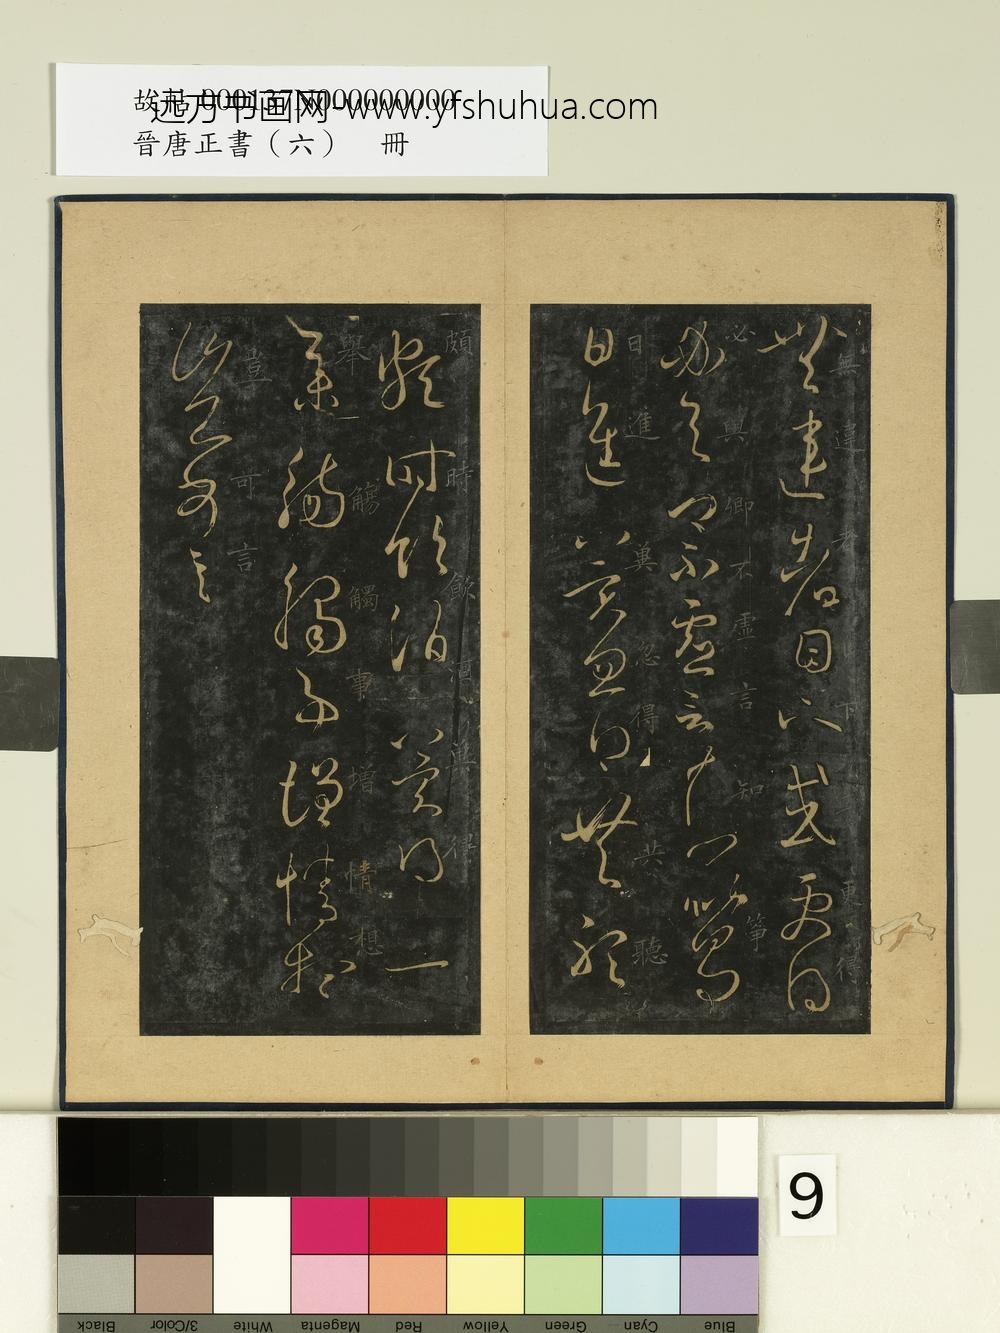 远方书画网-www.yfshuhua.com
晉唐正書（六） 冊
無違者 下 更得
必與卿不虛言 知箏
日進 冀忽得共聽
頗時飲酒無 得一
舉觴觸事增情想
豈可言
9
Black
3/Color
White
Magenta
Red
Yellow
Green
Cyan
Blue